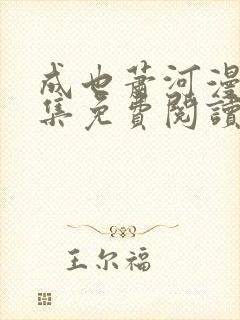 成也萧河漫
集免費閱讀
王尔福